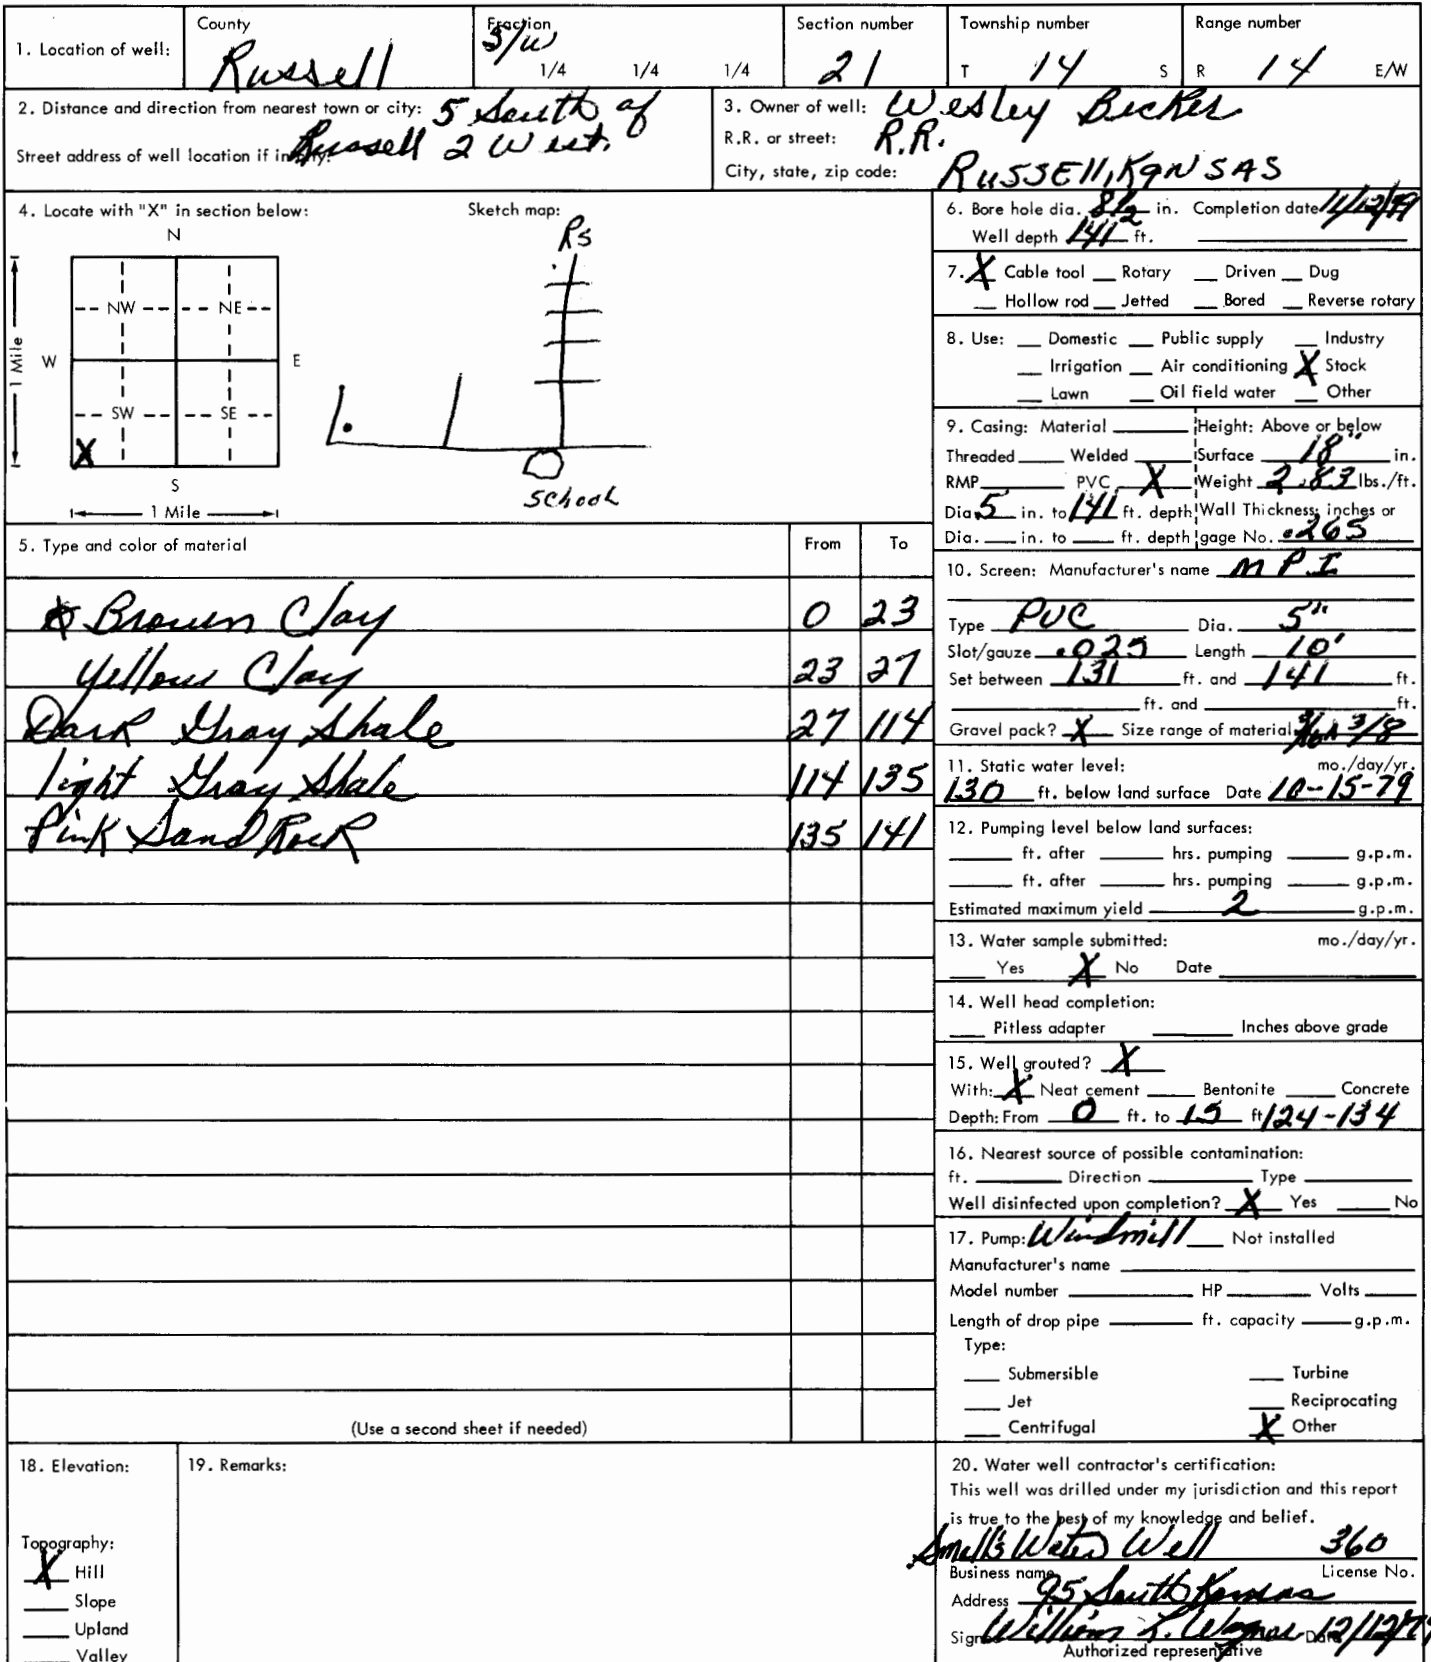 1. Location of well:
County
Russell
Fraction
S/W
1/4 1/4 1/4
Section number
21
Township number
T 14 S
Range number
R 14 E/W
2. Distance and direction from nearest town or city: 5 South of
Russell 2 West.
Street address of well location if in city:
3. Owner of well: Wesley Becker
R.R. or street: R.R.
City, state, zip code: RUSSEll, KANSAS
4. Locate with "X" in section below:
N
NW NE
W E
SW SE
X
S
1 Mile
1 Mile
Sketch map:
Rs
School
5. Type and color of material From To
Brown Clay 0 23
Yellow Clay 23 27
Dark Gray Shale 27 114
light Gray Shale 114 135
Pink Sand Rock 135 141
(Use a second sheet if needed)
6. Bore hole dia. 8 1/2 in. Completion date
Well depth 141 ft.
7. X Cable tool __ Rotary __ Driven __ Dug
__ Hollow rod __ Jetted __ Bored __ Reverse rotary
8. Use: __ Domestic __ Public supply __ Industry
__ Irrigation __ Air conditioning X Stock
__ Lawn __ Oil field water __ Other
9. Casing: Material ____ Height: Above or below
Threaded ____ Welded ____ Surface 18" in.
RMP ____ PVC X Weight 2.83 lbs./ft.
Dia. 5 in. to 141 ft. depth Wall Thickness: inches or
Dia. __ in. to __ ft. depth gage No. .265
10. Screen: Manufacturer's name M P I
Type PVC Dia. 5"
Slot/gauze .025 Length 10'
Set between 131 ft. and 141 ft.
____ ft. and ____ ft.
Gravel pack? X Size range of material 3/8
11. Static water level: mo./day/yr.
130 ft. below land surface Date 10-15-79
12. Pumping level below land surfaces:
____ ft. after ____ hrs. pumping ____ g.p.m.
____ ft. after ____ hrs. pumping ____ g.p.m.
Estimated maximum yield 2 g.p.m.
13. Water sample submitted: mo./day/yr.
__ Yes X No Date ____
14. Well head completion:
__ Pitless adapter ____ Inches above grade
15. Well grouted? X
With: X Neat cement ____ Bentonite ____ Concrete
Depth: From 0 ft. to 15 ft 124-134
16. Nearest source of possible contamination:
ft. ____ Direction ____ Type ____
Well disinfected upon completion? X Yes ____ No
17. Pump: Windmill __ Not installed
Manufacturer's name ____
Model number ____ HP ____ Volts ____
Length of drop pipe ____ ft. capacity ____ g.p.m.
Type:
__ Submersible __ Turbine
__ Jet __ Reciprocating
__ Centrifugal X Other
18. Elevation:
Topography:
X Hill
__ Slope
__ Upland
__ Valley
19. Remarks:
20. Water well contractor's certification:
This well was drilled under my jurisdiction and this report
is true to the best of my knowledge and belief.
Water Well 360
Business name License No.
Address 95 South Kansas
Signed William L. Date
Authorized representative